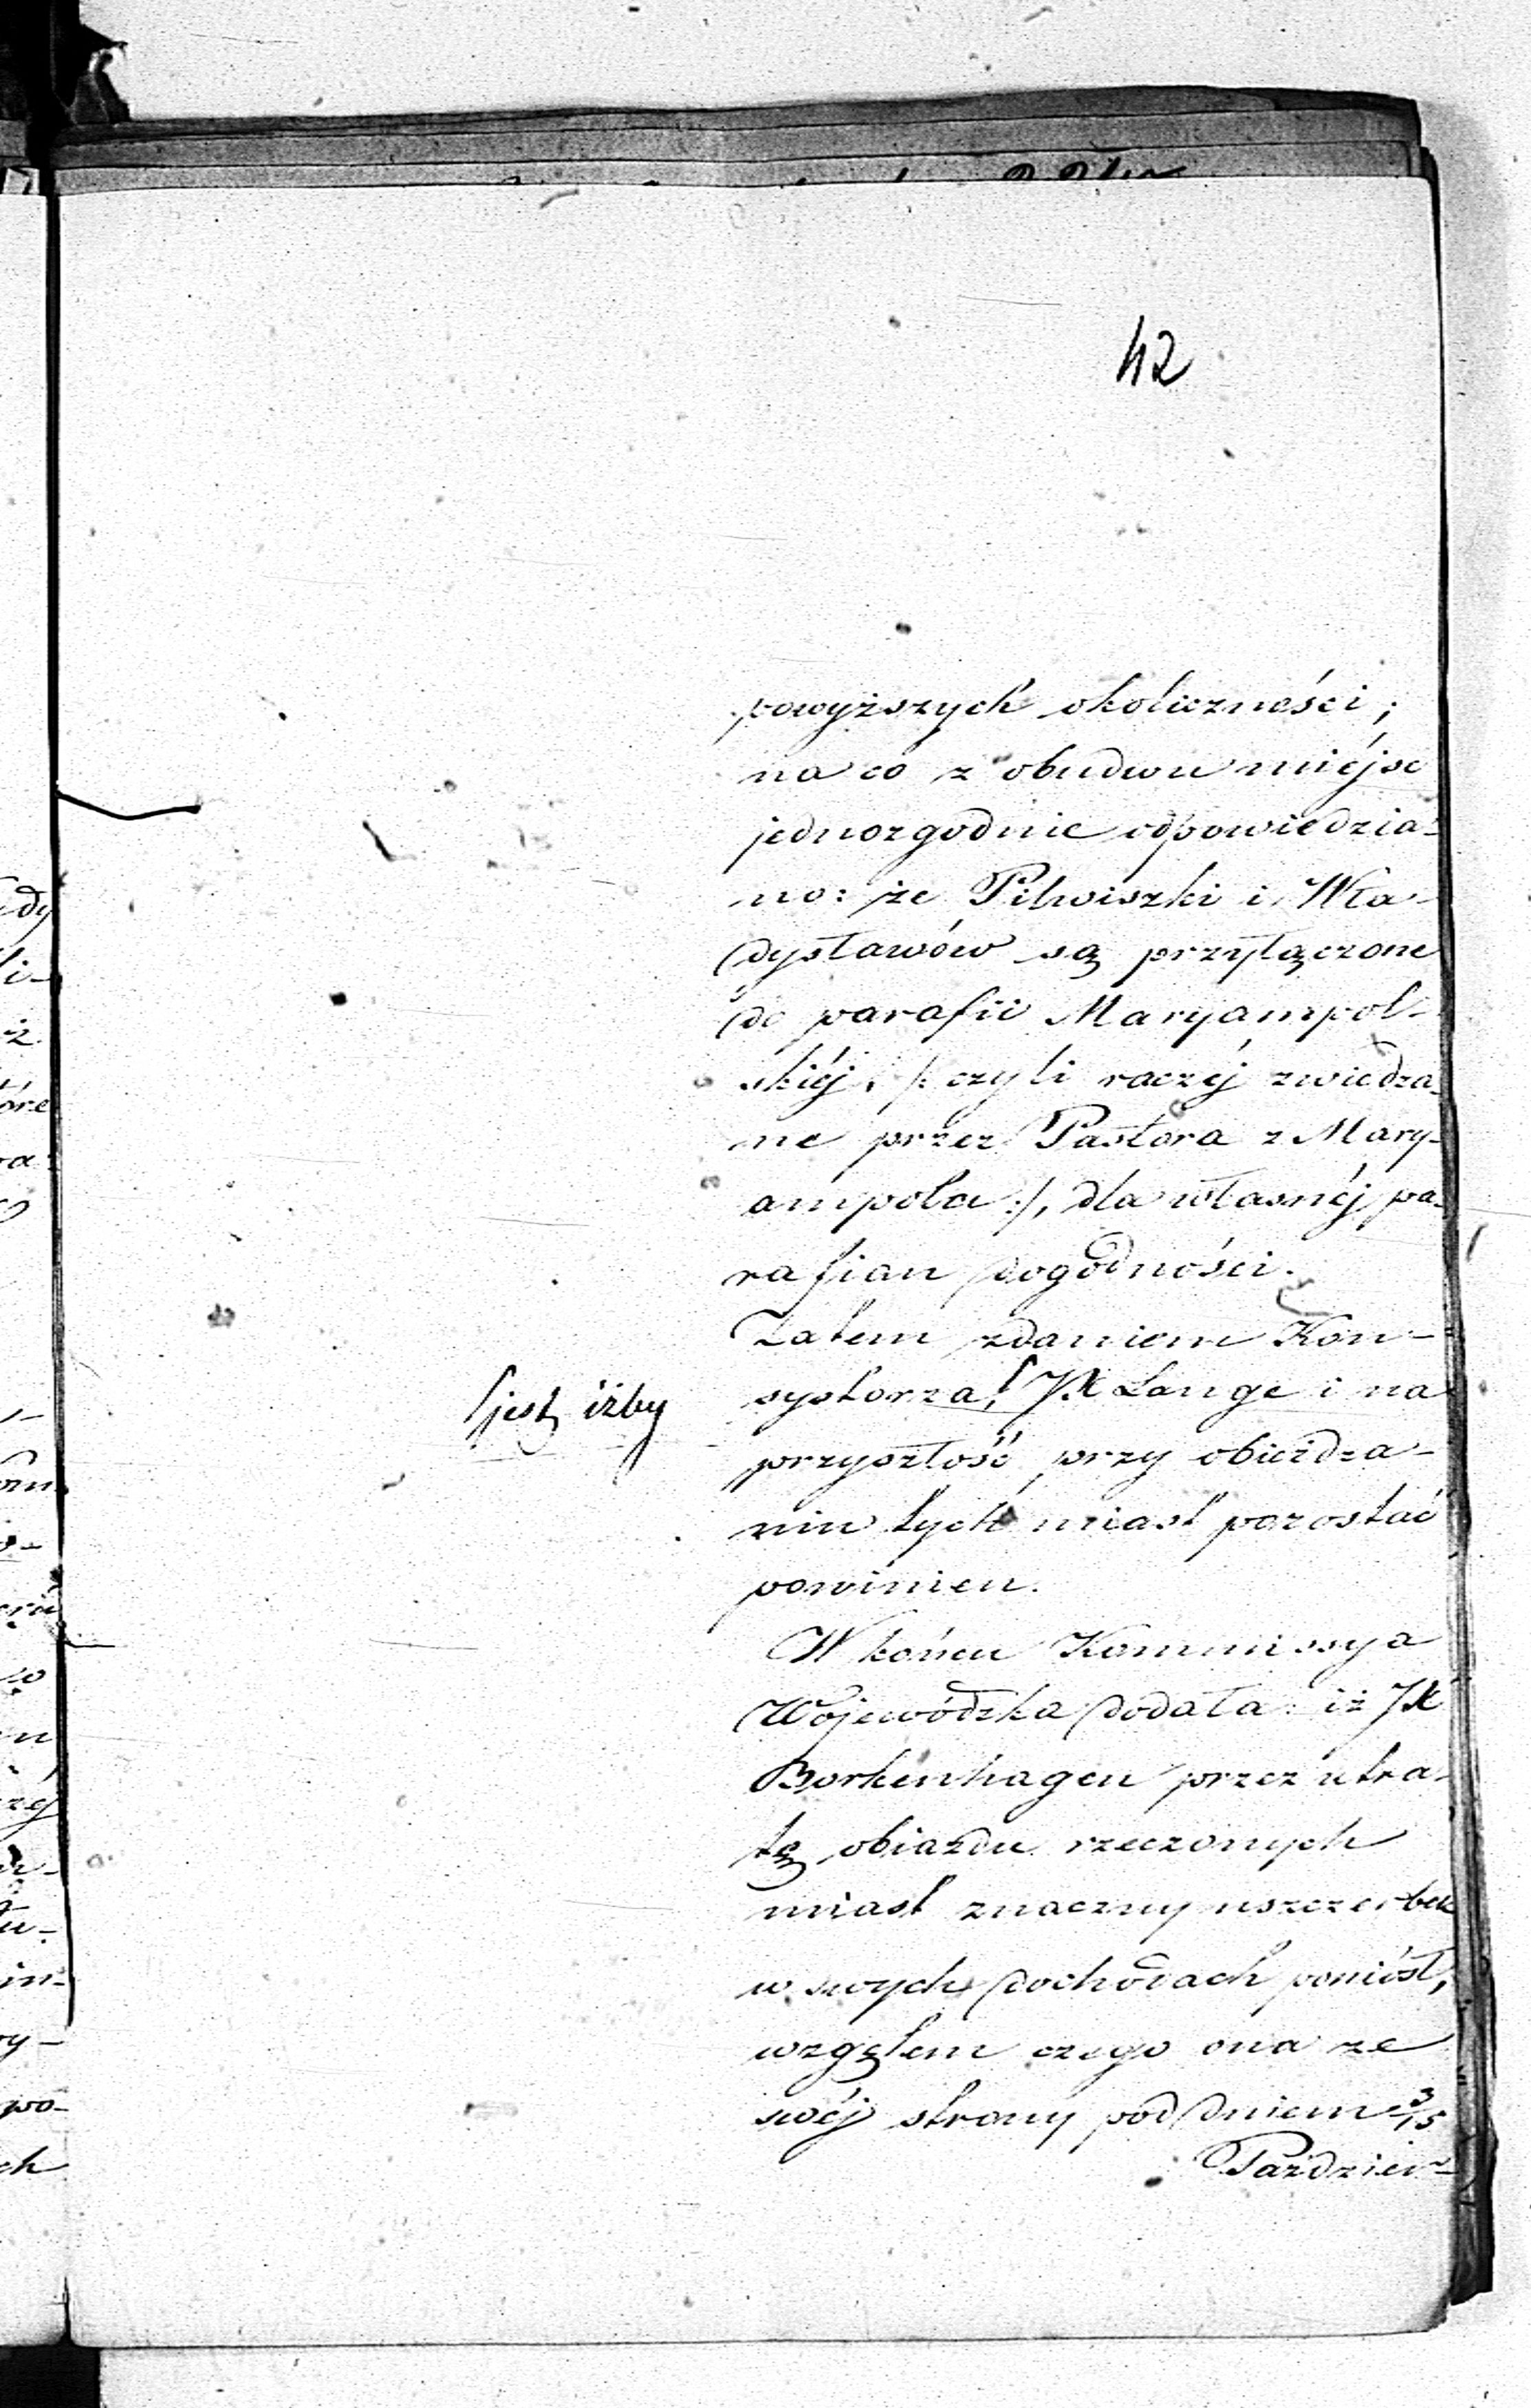 42
powyższych okoliczności;
na co z obudwu miejsc
jednozgodnie odpowiedzia-
no: że Pilwiszki i Wła-
dysławów są przyłączone
do parafii Maryampol-
skiéj, /: czyli raczéj zwiedza-
ne przez Pastora z Mary-
ampola :/, dla własnéj pa-
rafian dogodności.
Zatem zdaniem Kon-
systorza, JX Lange i na
jest, iżby
przyszłość przy obieżdza-
niu tych miast pozostać
powinien.
W końcu Kommissya
Wojewódzka dodała: iż JX
Borkenhagen przez utra-
tę objazdu rzeczonych
miast znaczny uszczerbek
w swych dochodach poniósł,
wzgętem czego ona ze
swéj strony pod dniem 3/15
Paździer-